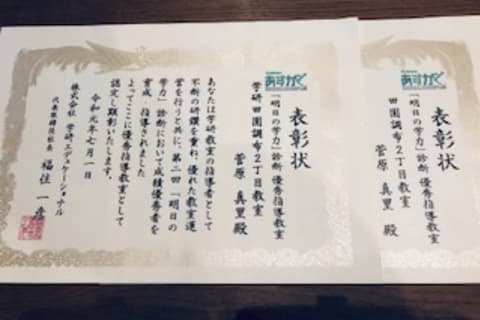 あすがく
表彰状
「明日の学力」診断 優秀指導教室
学研田園調布2丁目教室
菅原 真里 殿
あなたは学研教室の指導者として
不断の研鑽を重ね、優れた教室運
営を行うと共に、第二回「明日の
学力」診断において成績優秀者を
育成・指導されました
よってここに優秀指導教室として
認定し顕彰いたします。
令和元年七月一日
株式会社 学研エデュケーショナル
代表取締役社長 福住 一彦
あすがく
表彰状
「明日の学力」診断 優秀指導教室
田園調布2丁目教室
菅原 真里 殿